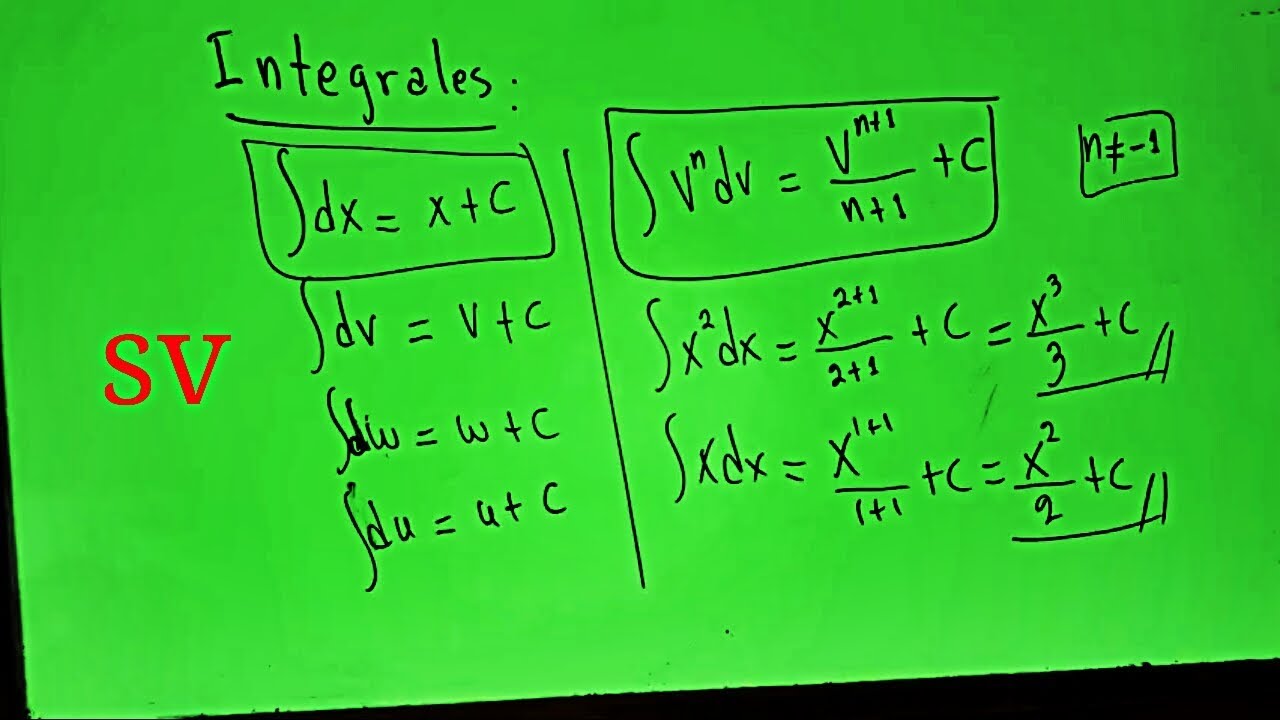 Integrales:
∫dx = x+C
∫dv = v+C
∫dw = w+C
∫du = u+C
∫vⁿdv = vⁿ⁺¹/(n+1) + C
n≠-1
∫x²dx = x²⁺¹/(2+1) + C = x³/3 + C //
∫xdx = x¹⁺¹/(1+1) + C = x²/2 + C //
SV